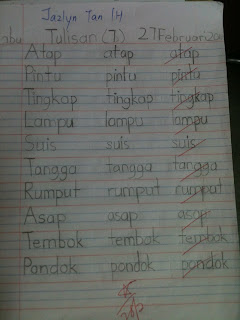 Jazlyn Tan IH
Tulisan (7.) 27 Februari
Atap atap atap
Pintu pintu pintu
Tingkap tingkap tingkap
Lampu lampu lampu
Suis suis suis
Tangga tangga tangga
Rumput rumput rumput
Asap asap asap
Tembok tembok tembok
Pandok pondok pondok